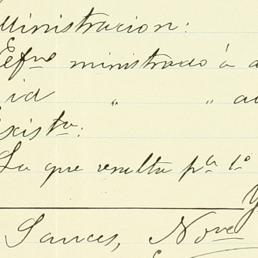 ministracion:
Efne ministrado á
id " "
Exista:
La que resulta pa 1o
Sauces, Nove